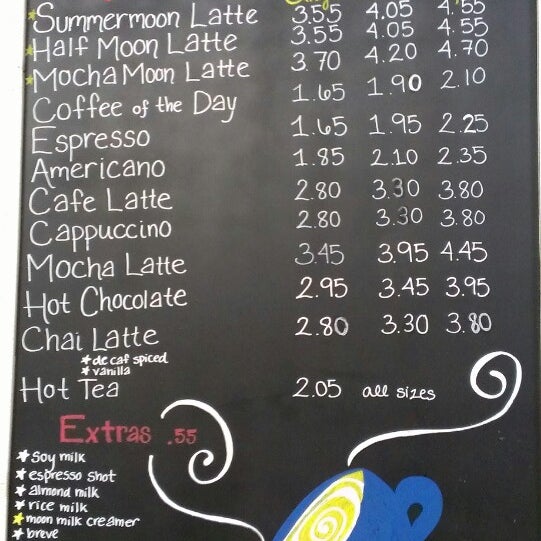 Summermoon Latte 3.55 4.05 4.55
Half Moon Latte 3.55 4.05 4.55
Mocha Moon Latte 3.70 4.20 4.70
Coffee of the Day 1.65 1.90 2.10
Espresso 1.65 1.95 2.25
Americano 1.85 2.10 2.35
Cafe Latte 2.80 3.30 3.80
Cappuccino 2.80 3.30 3.80
Mocha Latte 3.45 3.95 4.45
Hot Chocolate 2.95 3.45 3.95
Chai Latte 2.80 3.30 3.80
*decaf spiced
*vanilla
Hot Tea 2.05 all sizes
Extras .55
*soy milk
*espresso shot
*almond milk
*rice milk
*moon milk creamer
*breve